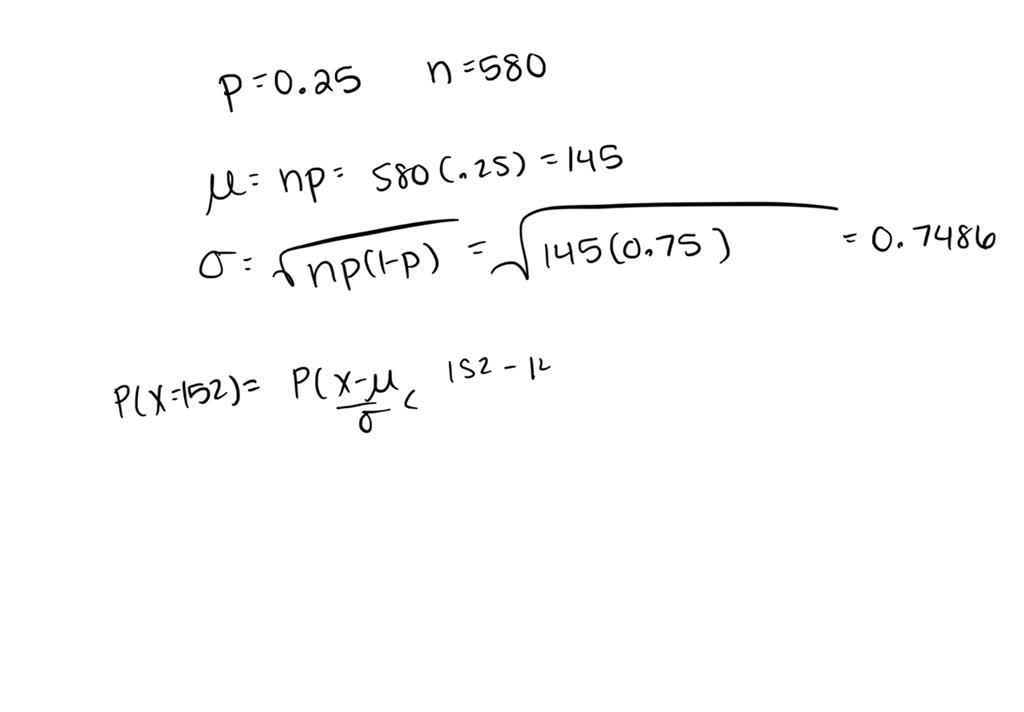 p=0.25 n=580
μ= np= 580(.25)=145
σ= √np(1-p) = √145(0.75) = 0.7486
P(X=152)= P(x-μ/σ < 152-12